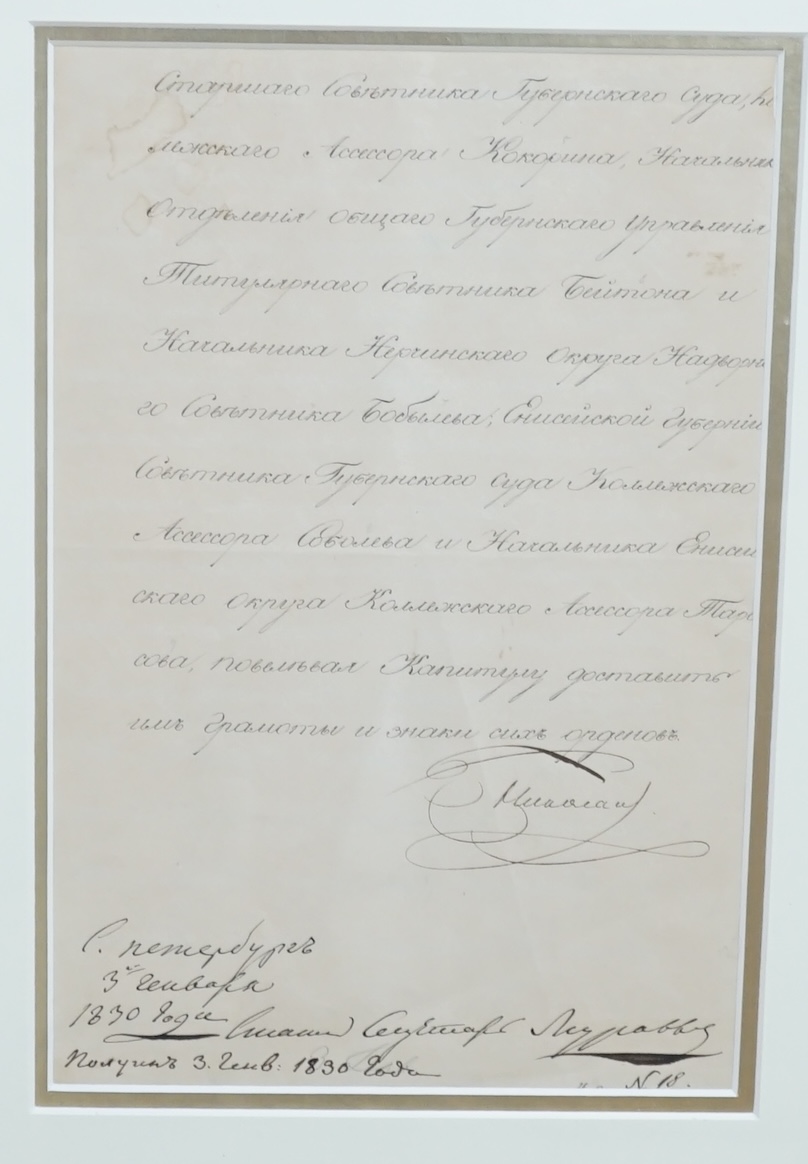 Старшаго Совѣтника Губернскаго Суда, Ко
лежскаго Ассессора Кокорина, Начальник
Отдѣленія общаго Губернскаго Управленія
Титулярнаго Совѣтника Бейтона и
Начальника Нерчинскаго округа Надворна
го Совѣтника Бобылева; Енисейской Губерніи
Совѣтника Губернскаго суда Коллежскаго
Ассессора Соболева и Начальника Енисей
скаго округа Коллежскаго Ассессора Тара
сова, повелѣвал Капитулу доставить
имъ грамоты и знаки сихъ орденовъ.
Николай
С. петербургъ
3го Генваря
1830 Года
Статс Секретарь Муравьев
Получен 3. Генв: 1830 Года
N 18.